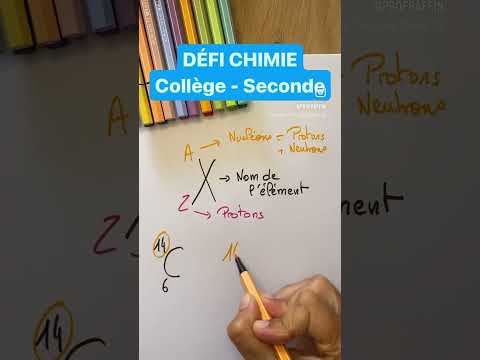 @PROFRAFFIN
DÉFI CHIMIE
Collège - Seconde
A → Nucléons = Protons
+ Neutrons
X → Nom de
l'élément
Z → Protons
14
C
6
Protons
Neutrons
ément
14